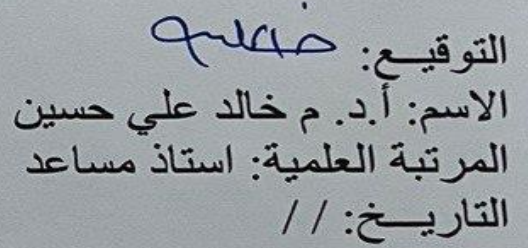 التوقيع:
الاسم: أ.د. م خالد علي حسين
المرتبة العلمية: استاذ مساعد
التاريخ: / /